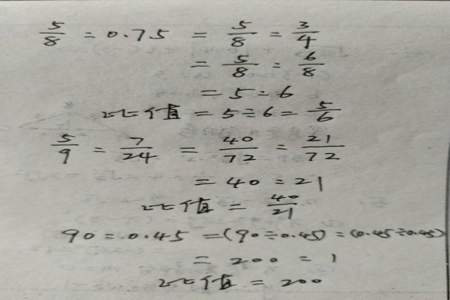 5/8 : 0.75 = 5/8 : 3/4
= 5/8 : 6/8
= 5 : 6
比值 = 5÷6 = 5/6
5/9 : 7/24 = 40/72 : 21/72
= 40 : 21
比值 = 40/21
90 : 0.45 = (90÷0.45) : (0.45÷0.45)
= 200 : 1
比值 = 200